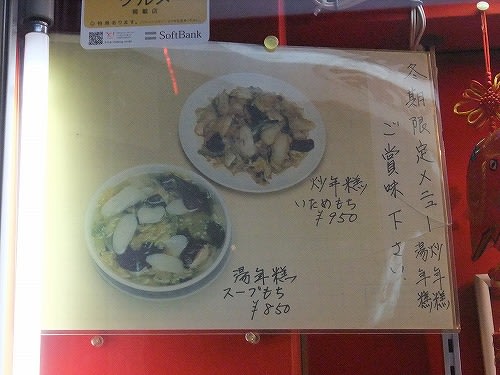 グルメ
掲載店
SoftBank
冬期限定メニュー 炒年糕
湯年糕
ご賞味下さい
炒年糕
いためもち
¥950
湯年糕
スープもち
¥850